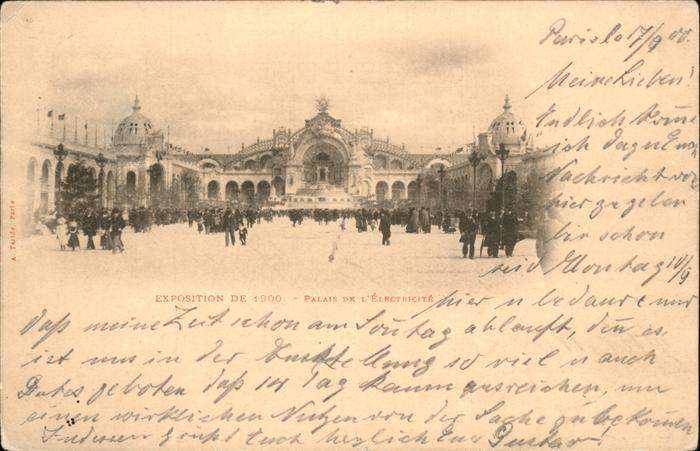 Paris le 17/9 00.
Meine Lieben!
Endlich komme
ich dazu Euch
Nachricht von
hier zu geben
bin schon
seit Montag 10/9
EXPOSITION DE 1900. - PALAIS DE L'ÉLECTRICITÉ
hier u bedaure nur
daß meine Zeit schon am Sontag abläuft, den es
ist uns in der Ausstellung so viel u auch
Gutes geboten daß 14 Tag kaum ausreichen, um
einen wirklichen Nutzen von der Sache zu bekommen
Indessen grüßt Euch herzlich Euer Gustav!